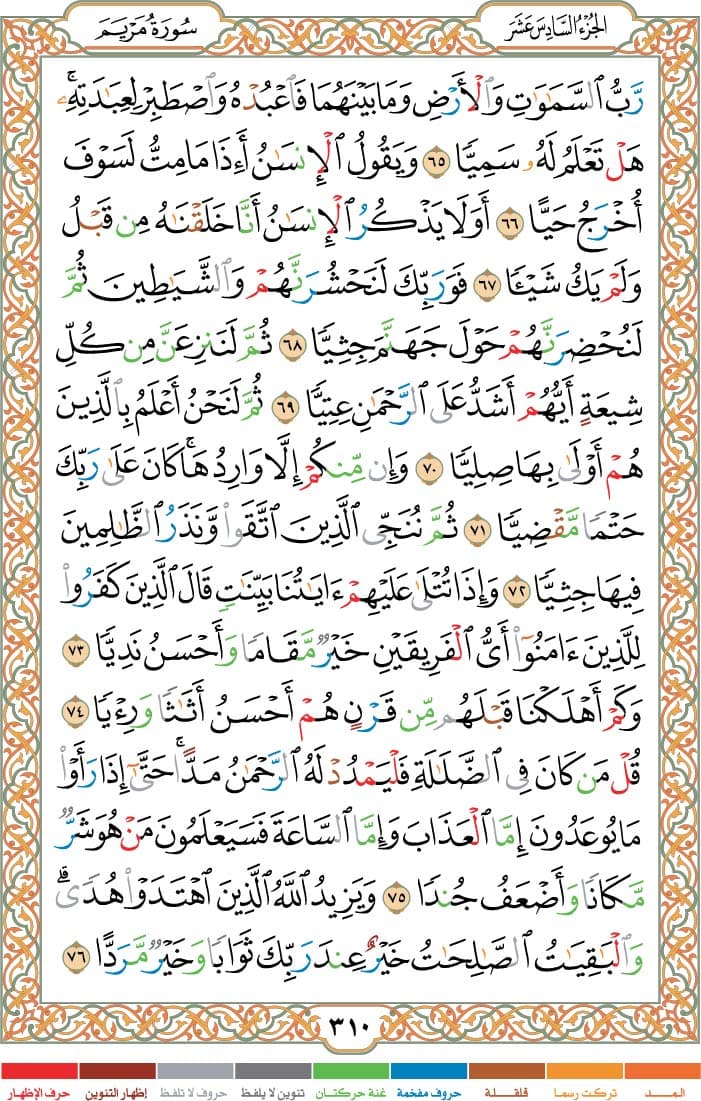 الجزء السادس عشر
سورة مريم
رَّبُّ ٱلسَّمَٰوَٰتِ وَٱلْأَرْضِ وَمَا بَيْنَهُمَا فَٱعْبُدْهُ وَٱصْطَبِرْ لِعِبَٰدَتِهِۦۚ
هَلْ تَعْلَمُ لَهُۥ سَمِيًّا ٦٥ وَيَقُولُ ٱلْإِنسَٰنُ أَءِذَا مَا مِتُّ لَسَوْفَ
أُخْرَجُ حَيًّا ٦٦ أَوَلَا يَذْكُرُ ٱلْإِنسَٰنُ أَنَّا خَلَقْنَٰهُ مِن قَبْلُ
وَلَمْ يَكُ شَيْـًٔا ٦٧ فَوَرَبِّكَ لَنَحْشُرَنَّهُمْ وَٱلشَّيَٰطِينَ ثُمَّ
لَنُحْضِرَنَّهُمْ حَوْلَ جَهَنَّمَ جِثِيًّا ٦٨ ثُمَّ لَنَنزِعَنَّ مِن كُلِّ
شِيعَةٍ أَيُّهُمْ أَشَدُّ عَلَى ٱلرَّحْمَٰنِ عِتِيًّا ٦٩ ثُمَّ لَنَحْنُ أَعْلَمُ بِٱلَّذِينَ
هُمْ أَوْلَىٰ بِهَا صِلِيًّا ٧٠ وَإِن مِّنكُمْ إِلَّا وَارِدُهَاۚ كَانَ عَلَىٰ رَبِّكَ
حَتْمًا مَّقْضِيًّا ٧١ ثُمَّ نُنَجِّى ٱلَّذِينَ ٱتَّقَوا۟ وَّنَذَرُ ٱلظَّٰلِمِينَ
فِيهَا جِثِيًّا ٧٢ وَإِذَا تُتْلَىٰ عَلَيْهِمْ ءَايَٰتُنَا بَيِّنَٰتٍ قَالَ ٱلَّذِينَ كَفَرُوا۟
لِلَّذِينَ ءَامَنُوٓا۟ أَىُّ ٱلْفَرِيقَيْنِ خَيْرٌ مَّقَامًا وَأَحْسَنُ نَدِيًّا ٧٣
وَكَمْ أَهْلَكْنَا قَبْلَهُم مِّن قَرْنٍ هُمْ أَحْسَنُ أَثَٰثًا وَرِءْيًا ٧٤
قُلْ مَن كَانَ فِى ٱلضَّلَٰلَةِ فَلْيَمْدُدْ لَهُ ٱلرَّحْمَٰنُ مَدًّاۚ حَتَّىٰٓ إِذَا رَأَوْا۟
مَا يُوعَدُونَ إِمَّا ٱلْعَذَابَ وَإِمَّا ٱلسَّاعَةَ فَسَيَعْلَمُونَ مَنْ هُوَ شَرٌّ
مَّكَانًا وَأَضْعَفُ جُندًا ٧٥ وَيَزِيدُ ٱللَّهُ ٱلَّذِينَ ٱهْتَدَوْا۟ هُدًىۗ
وَٱلْبَٰقِيَٰتُ ٱلصَّٰلِحَٰتُ خَيْرٌ عِندَ رَبِّكَ ثَوَابًا وَخَيْرٌ مَّرَدًّا ٧٦
٣١٠
المــــد
تركت رسما
قلقـــلة
حروف مفخمة
غنة حركتان
تنوين لا يلفظ
حروف لا تلفظ
إظهار التنوين
حرف الإظهار